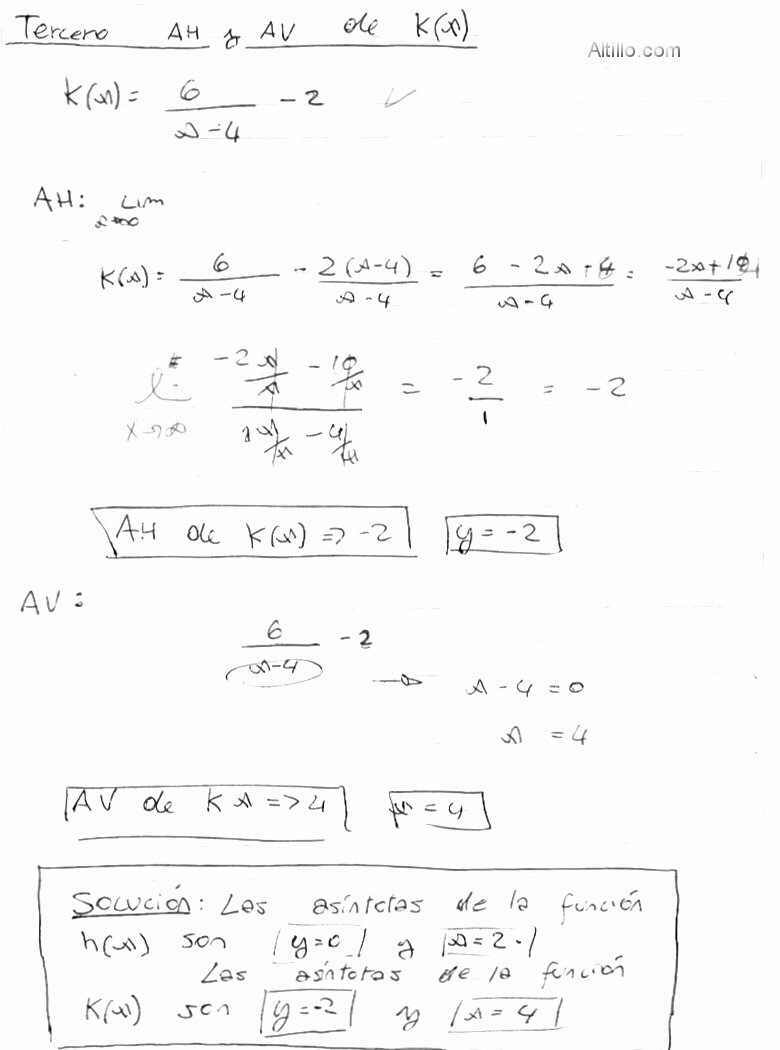 Tercero AH y AV de K(x)
Altillo.com
K(x) = 6/(x-4) - 2
AH: Lim
K(x) = 6/(x-4) - 2(x-4)/(x-4) = (6 - 2x + 4)/(x-4) = (-2x+14)/(x-4)
x→∞ (-2x/x - 10/x)/(1x/x - 4/x) = -2/1 = -2
AH de K(x) => -2 y = -2
AV:
6/(x-4) - 2
→ x - 4 = 0
x = 4
AV de K x => 4 x = 4
Solución: Las asíntotas de la función
h(x) son y=0 y x=2.
Las asíntotas de la función
K(x) son y=-2 y x=4